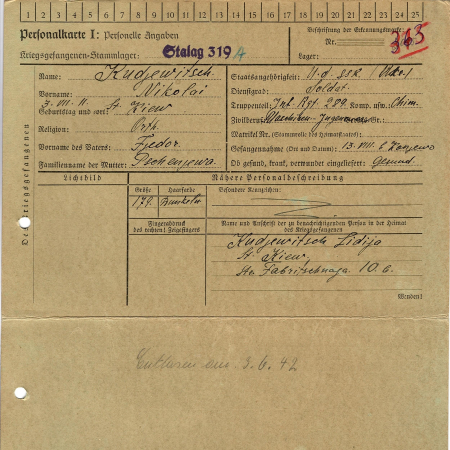 1 2 3 4 5 6 7 8 9 10 11 12 13 14 15 16 17 18 19 20 21 22 23 24 25
Personalkarte I: Personelle Angaben
Beschriftung der Erkennungsmarke
Kriegsgefangenen-Stammlager: Stalag 319 A
Nr.
Lager:
Des Kriegsgefangenen
Name: Kudjewitsch
Staatsangehörigkeit: U.d.SSR.
Vorname: Nikolai
Dienstgrad: Soldat
Geburtstag und -ort: 3. VIII. 11. St. Kiew
Truppenteil: Inf. Rgt. 299 Komp. usw.
Religion: Orth.
Zivilberuf:
Matrikel Nr. (Stammrolle des Heimatstaates):
Vorname des Vaters: Fjedor
Gefangennahme (Ort und Datum): 13. VIII.
Familienname der Mutter:
Ob gesund, krank, verwundet eingeliefert: Gesund
Lichtbild
Nähere Personalbeschreibung
Größe
Haarfarbe
Besondere Kennzeichen:
179. Dunkelbl.
Fingerabdruck
des rechten! Zeigefingers
Name und Anschrift der zu benachrichtigenden Person in der Heimat
des Kriegsgefangenen
Kudjewitsch Lidija
St. Kiew,
Str. Fabritschnaja 10. 6.
Wenden!
3. 6. 42